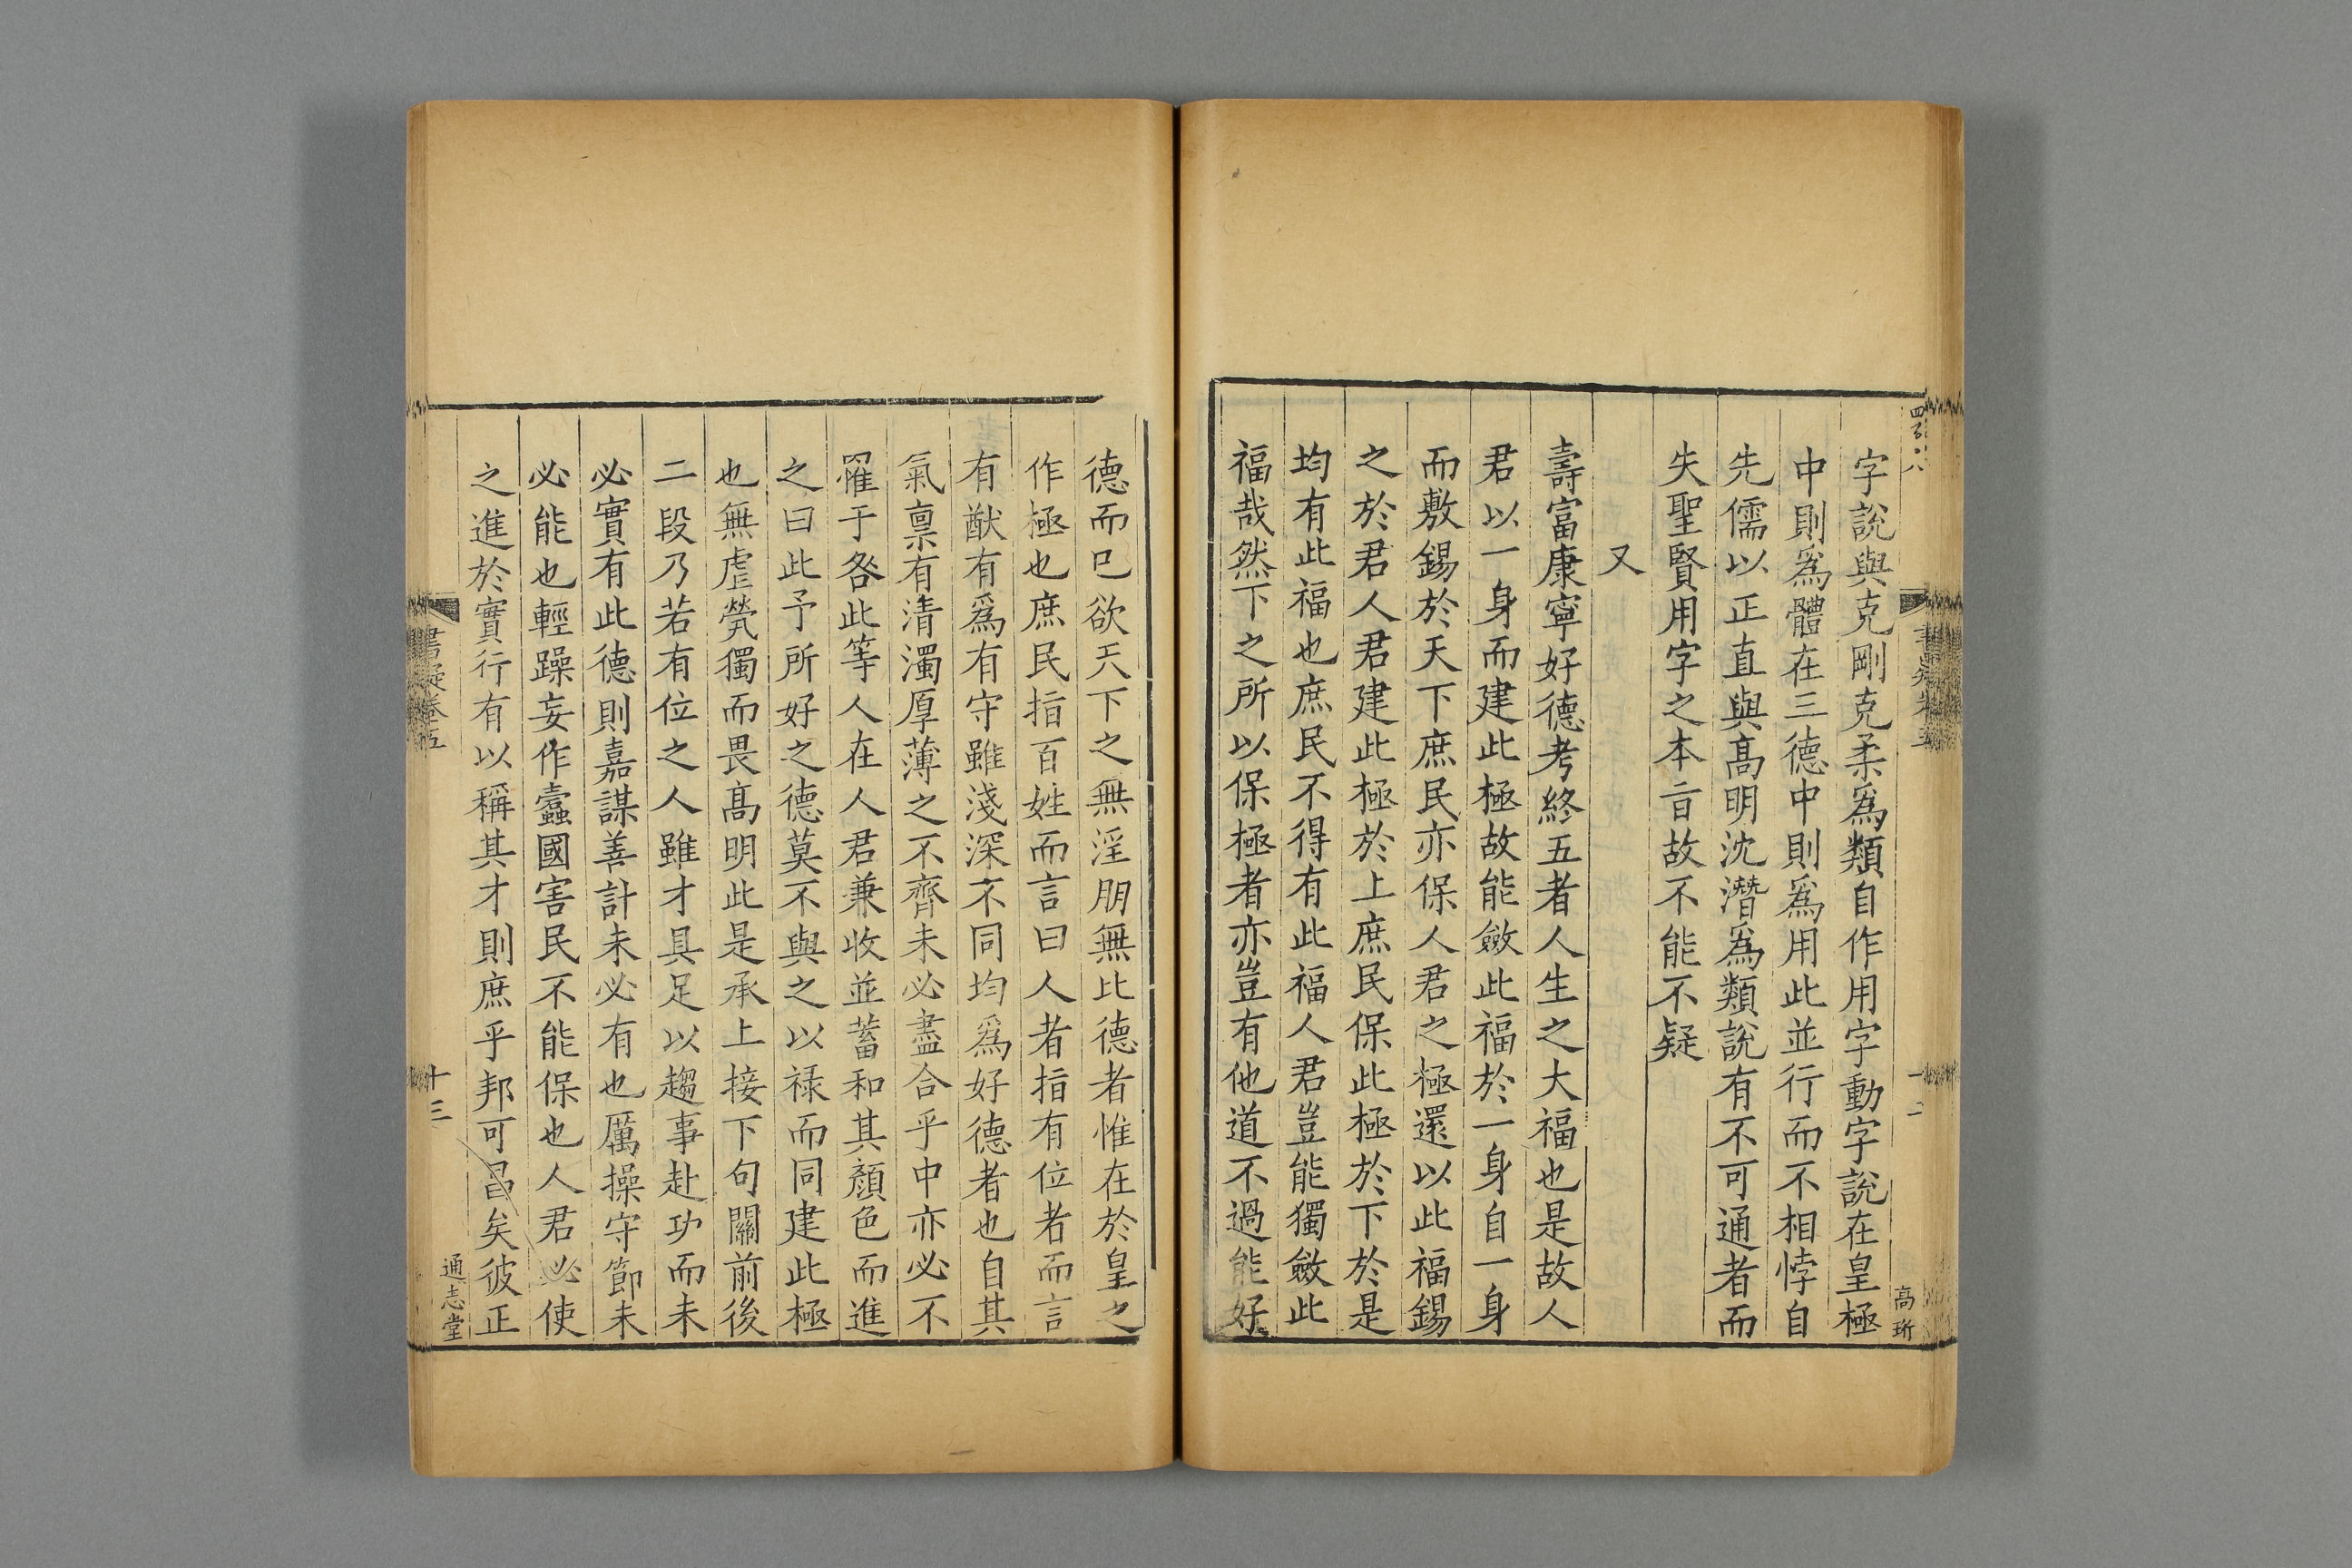 字說與克剛克柔爲類自作用字動字說在皇極
中則爲體在三德中則爲用此並行而不相悖自
先儒以正直與高明沈潛爲類說有不可通者而
失聖賢用字之本旨故不能不疑
又
壽富康寧好德考終五者人生之大福也是故人
君以一身而建此極故能斂此福於一身自一身
而敷錫於天下庶民亦保人君之極還以此福錫
之於君人君建此極於上庶民保此極於下於是
均有此福也庶民不得有此福人君豈能獨斂此
福哉然下之所以保極者亦豈有他道不過能好
高珩
德而已欲天下之無淫朋無比德者惟在於皇之
作極也庶民指百姓而言曰人者指有位者而言
有猷有爲有守雖淺深不同均爲好德者也自其
氣禀有清濁厚薄之不齊未必盡合乎中亦必不
罹于咎此等人在人君兼收並蓄和其顏色而進
之曰此予所好之德莫不與之以祿而同建此極
也無虐煢獨而畏高明此是承上接下句關前後
二段乃若有位之人雖才具足以趨事赴功而未
必實有此德則嘉謀善計未必有也厲操守節未
必能也輕躁妄作蠹國害民不能保也人君必使
之進於實行有以稱其才則庶乎邦可昌矣彼正
書疑卷五
十三
通志堂